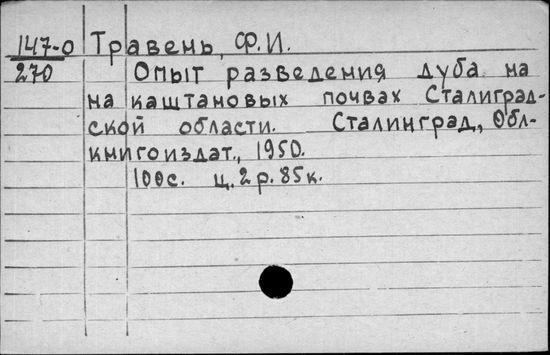 147-0 Травень, Ф.И.
270 Опыт разведения дуба на
на каштановых почвах Сталиград-
ской области. Сталинград, Обл-
книгоиздат., 1950.
100с. ц.2р.85к.